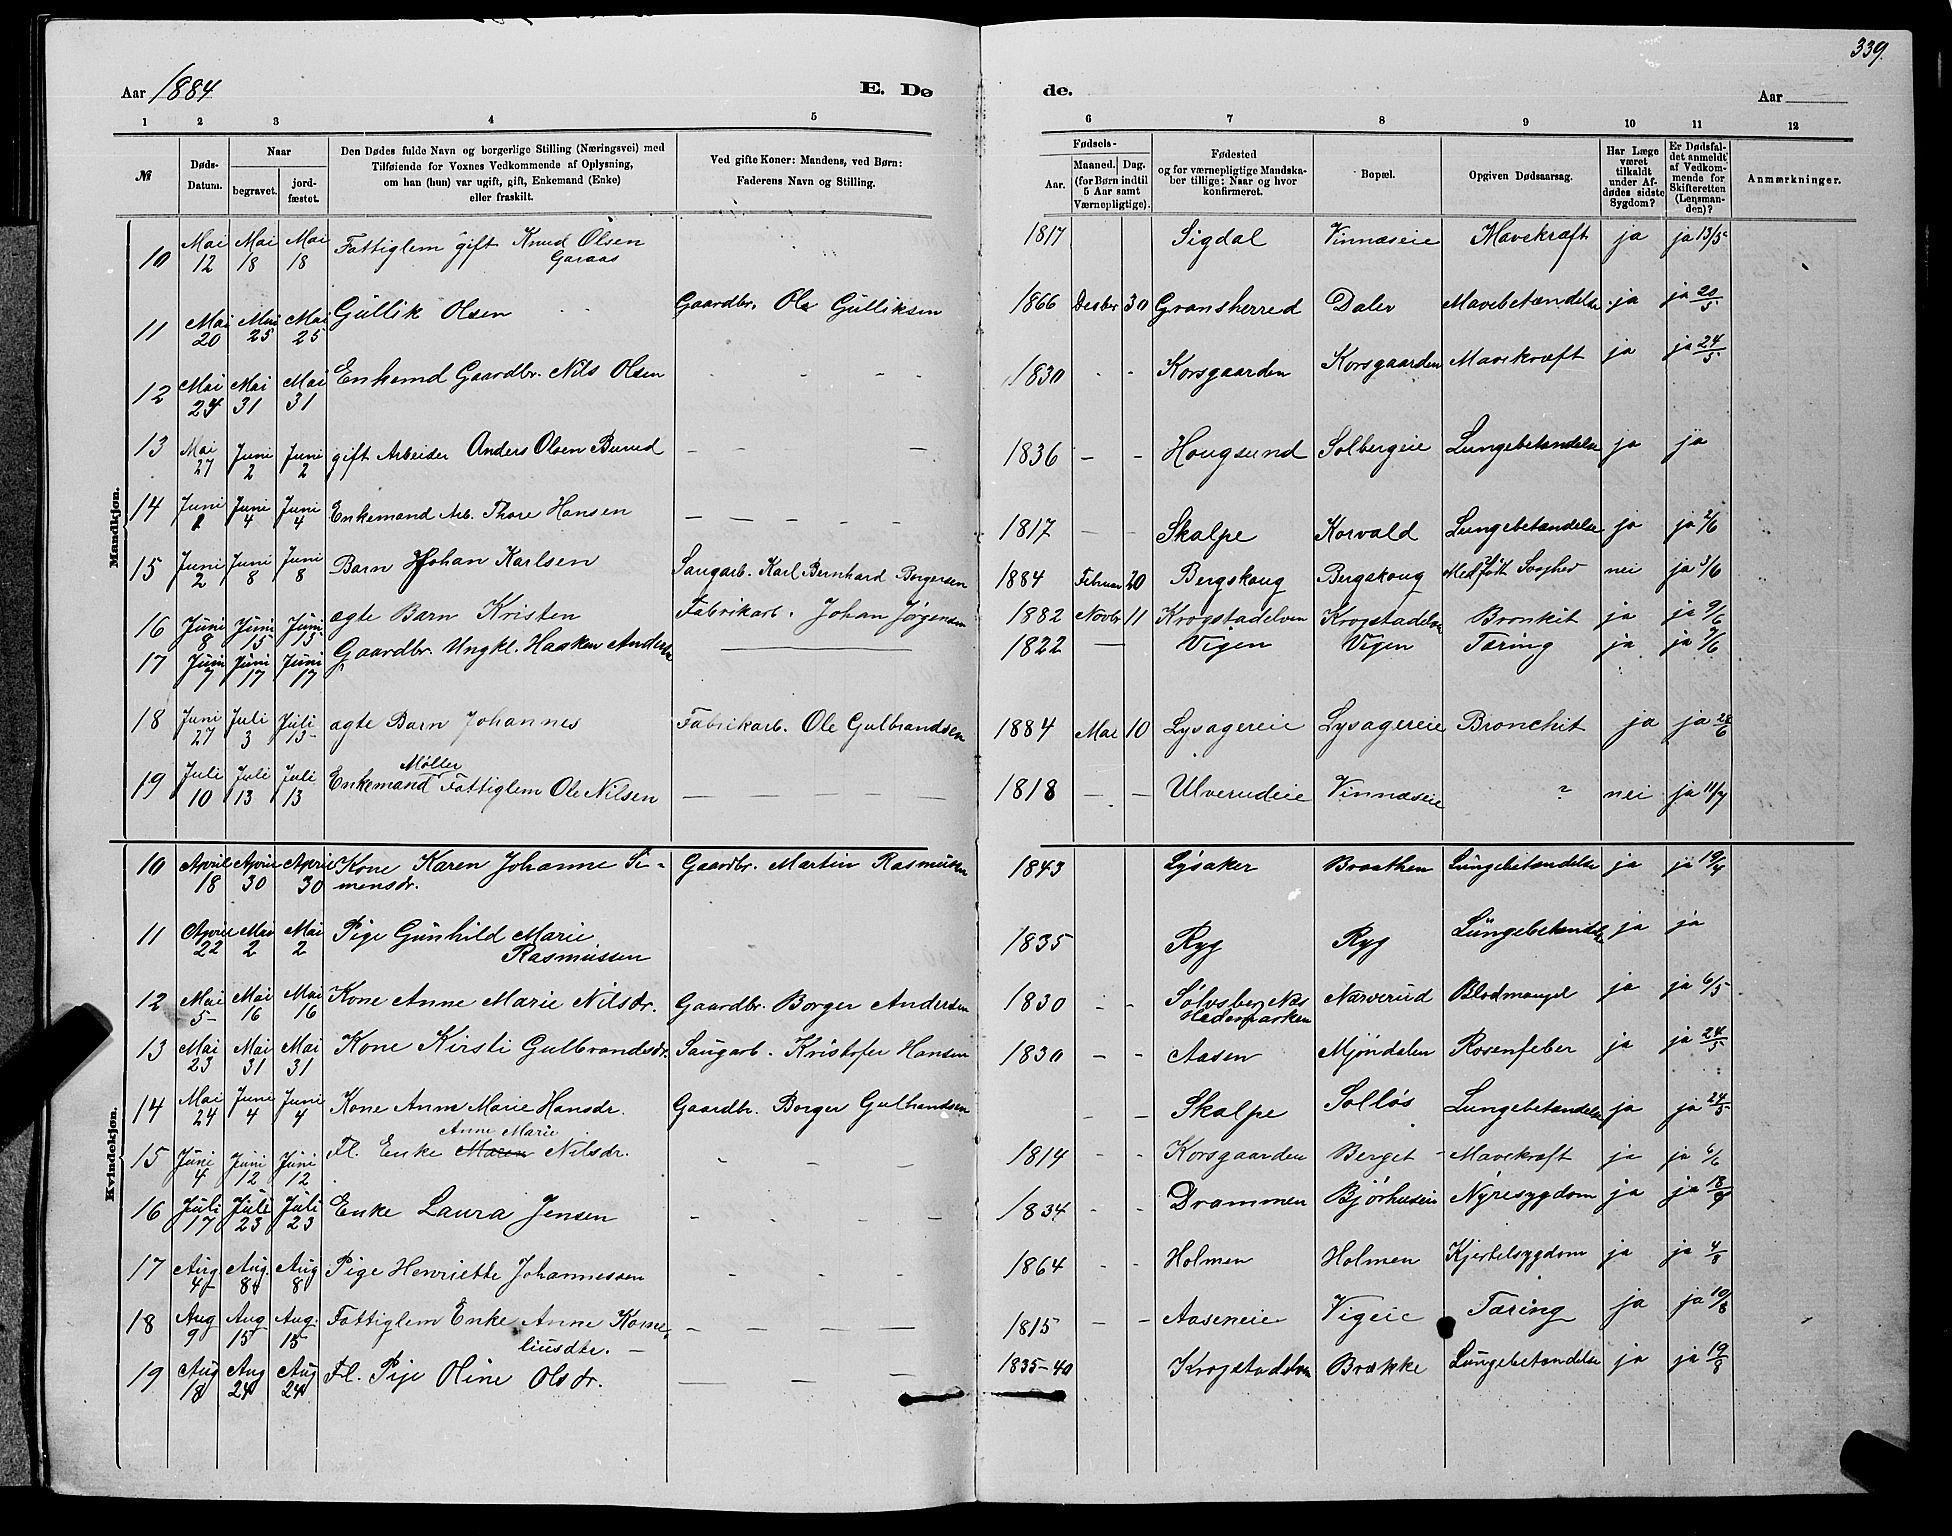 339.
Aar 1884 E. Dø de. Aar
1 2 3 4 5 6 7 8 9 10 11 12
№ Døds-Datum. Naar begravet. jordfæstet. Den Dødes fulde Navn og borgerlige Stilling (Næringsvei) med Tilføiende for Voxnes Vedkommende af Oplysning, om han (hun) var ugift, gift, Enkemand (Enke) eller fraskilt. Ved gifte Koner: Mandens, ved Børn: Faderens Navn og Stilling. Fødsels- Aar. Maaned. Dag. (for Børn indtil 5 Aar samt Værnepligtige). Fødested og for værnepligtige Mandskaber tillige: Naar og hvor konfirmeret. Bopæl. Opgiven Dødsaarsag. Har Læge været tilkaldt under Afdødes sidste Sygdom? Er Dødsfaldet anmeldt af Vedkommende for Skifteretten (Lensmanden)? Anmærkninger.
Mandkjøn.
10 Mai 12 Mai 18 Mai 18 Fattiglem gift Knud Olsen Garaas 1817 Sigdal Vinnæseie Mavekræft ja ja 13/5
11 Mai 20 Mai 25 Mai 25 Gullik Olsen Gaardbr. Ole Gulliksen 1866 Desbr 30 Gransherred Dalen Mavebetændelse ja ja 20/5
12 Mai 24 Mai 31 Mai 31 Enkemd Gaardbr. Nils Olsen 1830 - - Korsgaarden Korsgaarden Mavekræft ja ja 24/5
13 Mai 27 Juni 2 Juni 2 gift Arbeider Anders Olsen Burud — — — 1836 — - Hougsund Solbergeie Lungebetændelse ja ja
14 Juni 1 Juni 4 Juni 4 Enkemand Arb. Thore Hansen — — — — — 1817 — - Skalpe Korvald Lungebetændelse ja ja 2/6
15 Juni 2 Juni 8 Juni 8 Barn Johan Karlsen Saugarb. Karl Bernhard Borgersen 1884 Februar 20 Bergskoug Bergskoug Medfødt Svaghed nei ja 3/6
16 Juni 8 Juni 15 Juni 15 ægte Barn Kristen Fabrikarb. Johan Jørgensen 1882 Novbr 11 Krogstadelven Krogstadelven Bronkit ja ja 9/6
17 Juni 7 Juni 17 Juni 17 Gaardbr. Ungkl. Haaken Anderse 1822 — Vigen Vigen Tæring ja ja 7/6
18 Juni 27 Juli 3 Juli 13 ægte Barn Johannes Fabrikarb. Ole Gulbrandsen 1884 Mai 10 Lysagereie Lysagereie Bronchit ja ja 28/6
19 Juli 10 Juli 13 Juli 13 Enkemand Møller Fattiglem Ole Nilsen — — — — — 1818 — — Ulverudeie Vinnæseie ? nei ja 11/7
Kvindekjøn.
10 April 18 April 30 April 30 Kone Karen Johanne Si-mensdr. Gaardbr. Martin Rasmussen 1843 Lysaker Braathen Lungebetændelse ja ja 19/4
11 April 22 Mai 2 Mai 2 Pige Gunhild Marie Rasmussen 1835 Ryg Ryg Lungebetændelse ja ja
12 Mai 5 Mai 16 Mai 16 Kone Anne Marie Nilsdr. Gaardbr. Borger Andersen 1830 - - Solvsberg Næs Hedemarken Narverud Blodmangel ja ja 6/5
13 Mai 23 Mai 31 Mai 31 Kone Kirsti Gulbrandsdr. Saugarb. Kristofer Hansen 1830 - - Aasen Mjøndalen Rosenfeber ja ja 24/5
14 Mai 24 Juni 4 Juni 4 Kone Anne Marie Hansdr. Gaardbr. Borger Gulbrandsen - - Skalpe Solløs Lungebetændelse ja ja 24/5
15 Juni 4 Juni 12 Juni 12 Fl. Enke Maren Anne Marie Nilsdr. - - - 1814 - - Korsgaarden Berget Mavekræft ja ja 6/6
16 Juli 17 Juli 23 Juli 23 Enke Laura Jensen - - - 1834 - - Drammen Bjørhuseie Nyresygdom ja ja
17 Aug. 4 Aug. 8 Aug 8 Pige Henriette Johannessen - - - 1864 - - Holmen Holmen Kjertelsygdom ja ja 4/8
18 Aug 9 Aug 15 Aug. 15 Fattiglem Enke Anne Korne-liusdtr. — — — — 1815 — — Aaseneie Vigeie Tæring ja ja 10/8
19 Aug 18 Aug 24 Aug 24 Fl. Pige Oline Olsdr. — — — 1835-40 Krogstadelven Brække Lungebetændelse ja ja 19/8